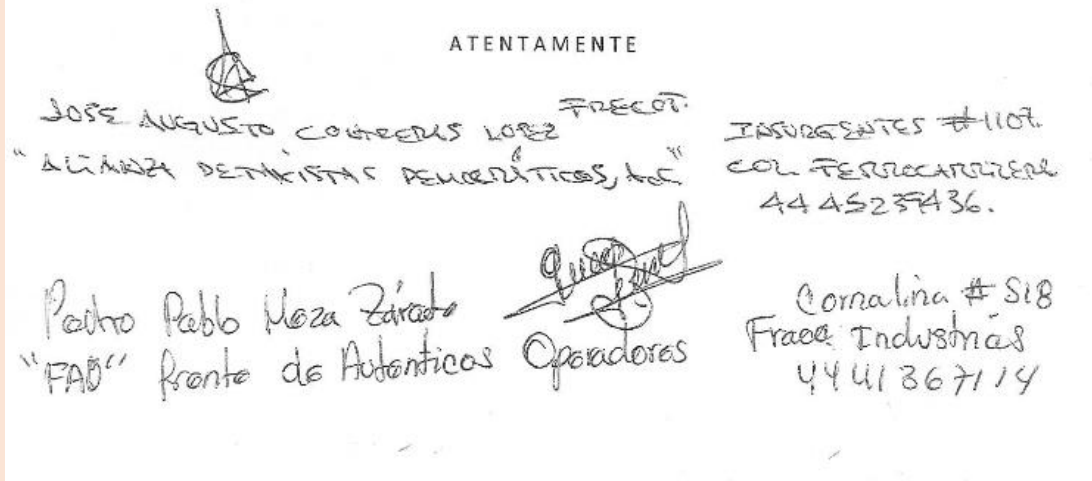 ATENTAMENTE
JOSE AUGUSTO CONTRERAS LOPEZ FRECOT.
"ALIANZA DE TAXISTAS DEMOCRÁTICOS, A.C"
INSURGENTES #1107.
COL. FERROCARRILERA
4445239436.
Pedro Pablo Meza Zárate
"FAO" frente de Autenticos Operadores
Cornalina # 518
Fracc Industrias
4441367114